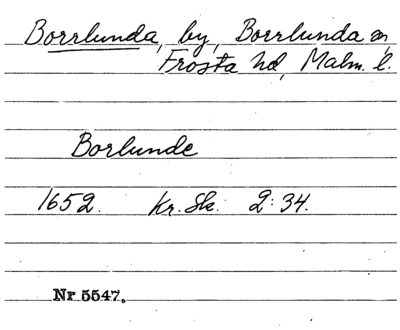 Borrlunda, by, Borrlunda sn,
Frosta hd, Malm. l.
Borlunde
1652. Kr. Sk. 2:34.
Nr 5547.